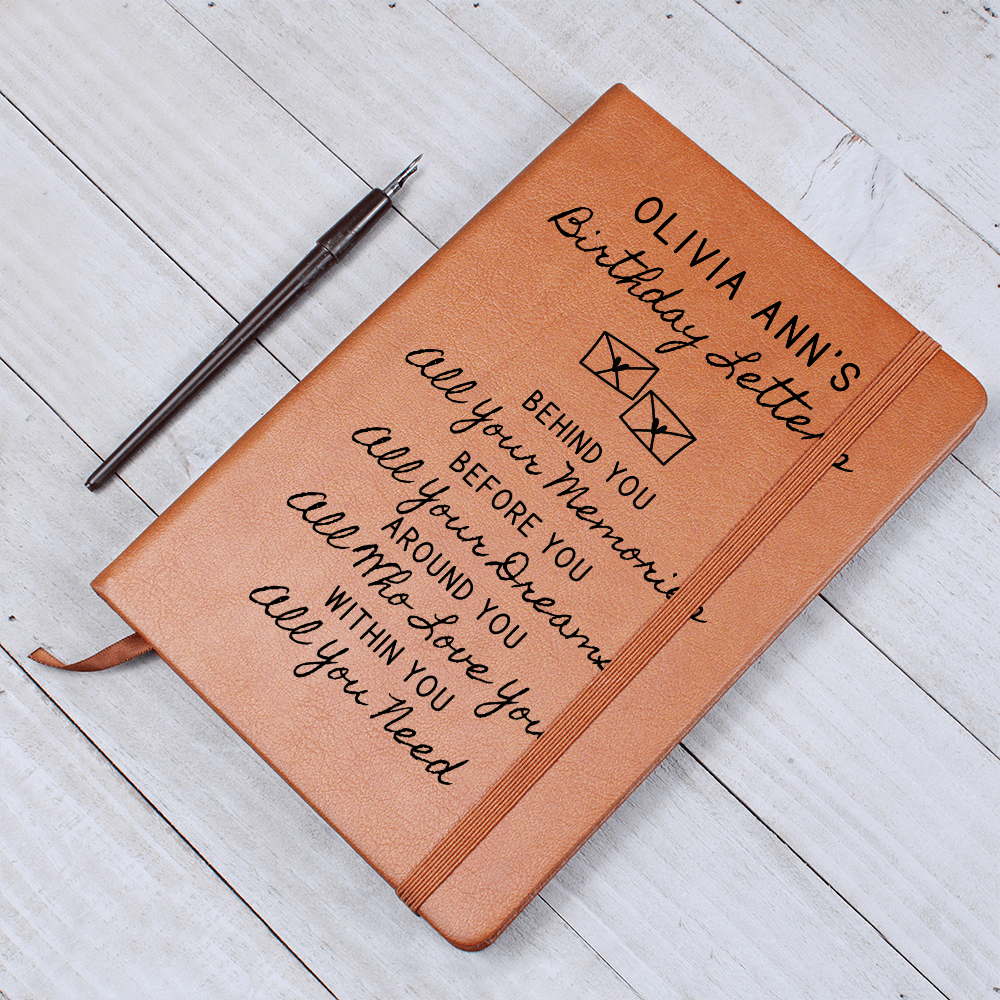 OLIVIA ANN'S
Birthday Letters
BEHIND YOU
All Your Memories
BEFORE YOU
All Your Dreams
AROUND YOU
All Who Love You
WITHIN YOU
All You Need